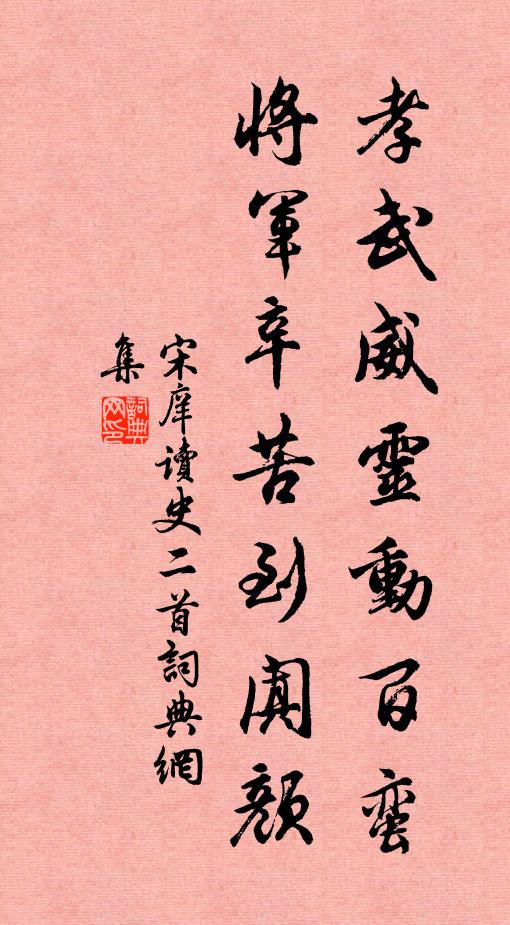 孝武威靈動百蛮
將軍辛苦到闐顏
宋庠讀史二首詞典網
集
詞典网印